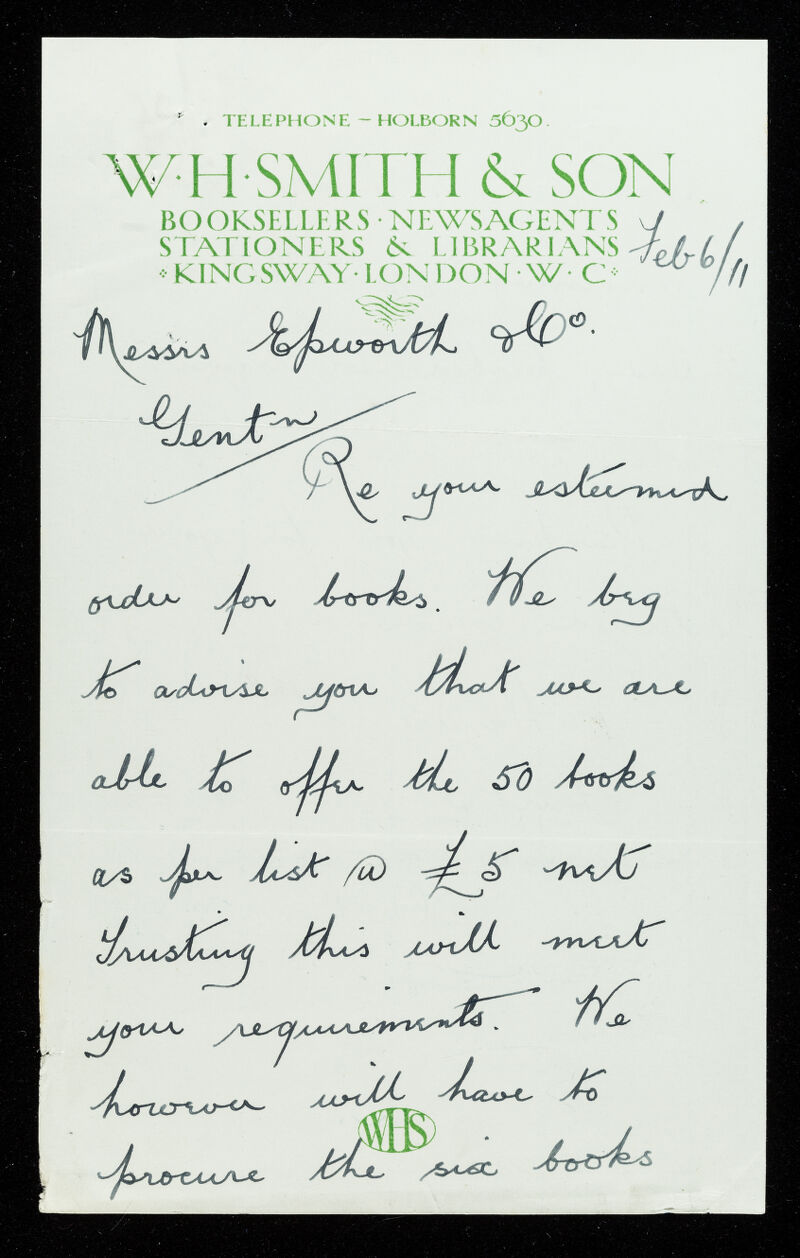 TELEPHONE – HOLBORN 5630.
W·H·SMITH & SON
BOOKSELLERS · NEWSAGENTS
STATIONERS & LIBRARIANS
KINGSWAY · LONDON · W · C
Feb 6/11
Messrs Epworth & Co.
Gentn
Re your esteemed
order for books. We beg
to advise you that we are
able to offer the 50 books
as per list @ £5 net
Trusting this will meet
your requirements. We
however will have to
WHS
procure the six books